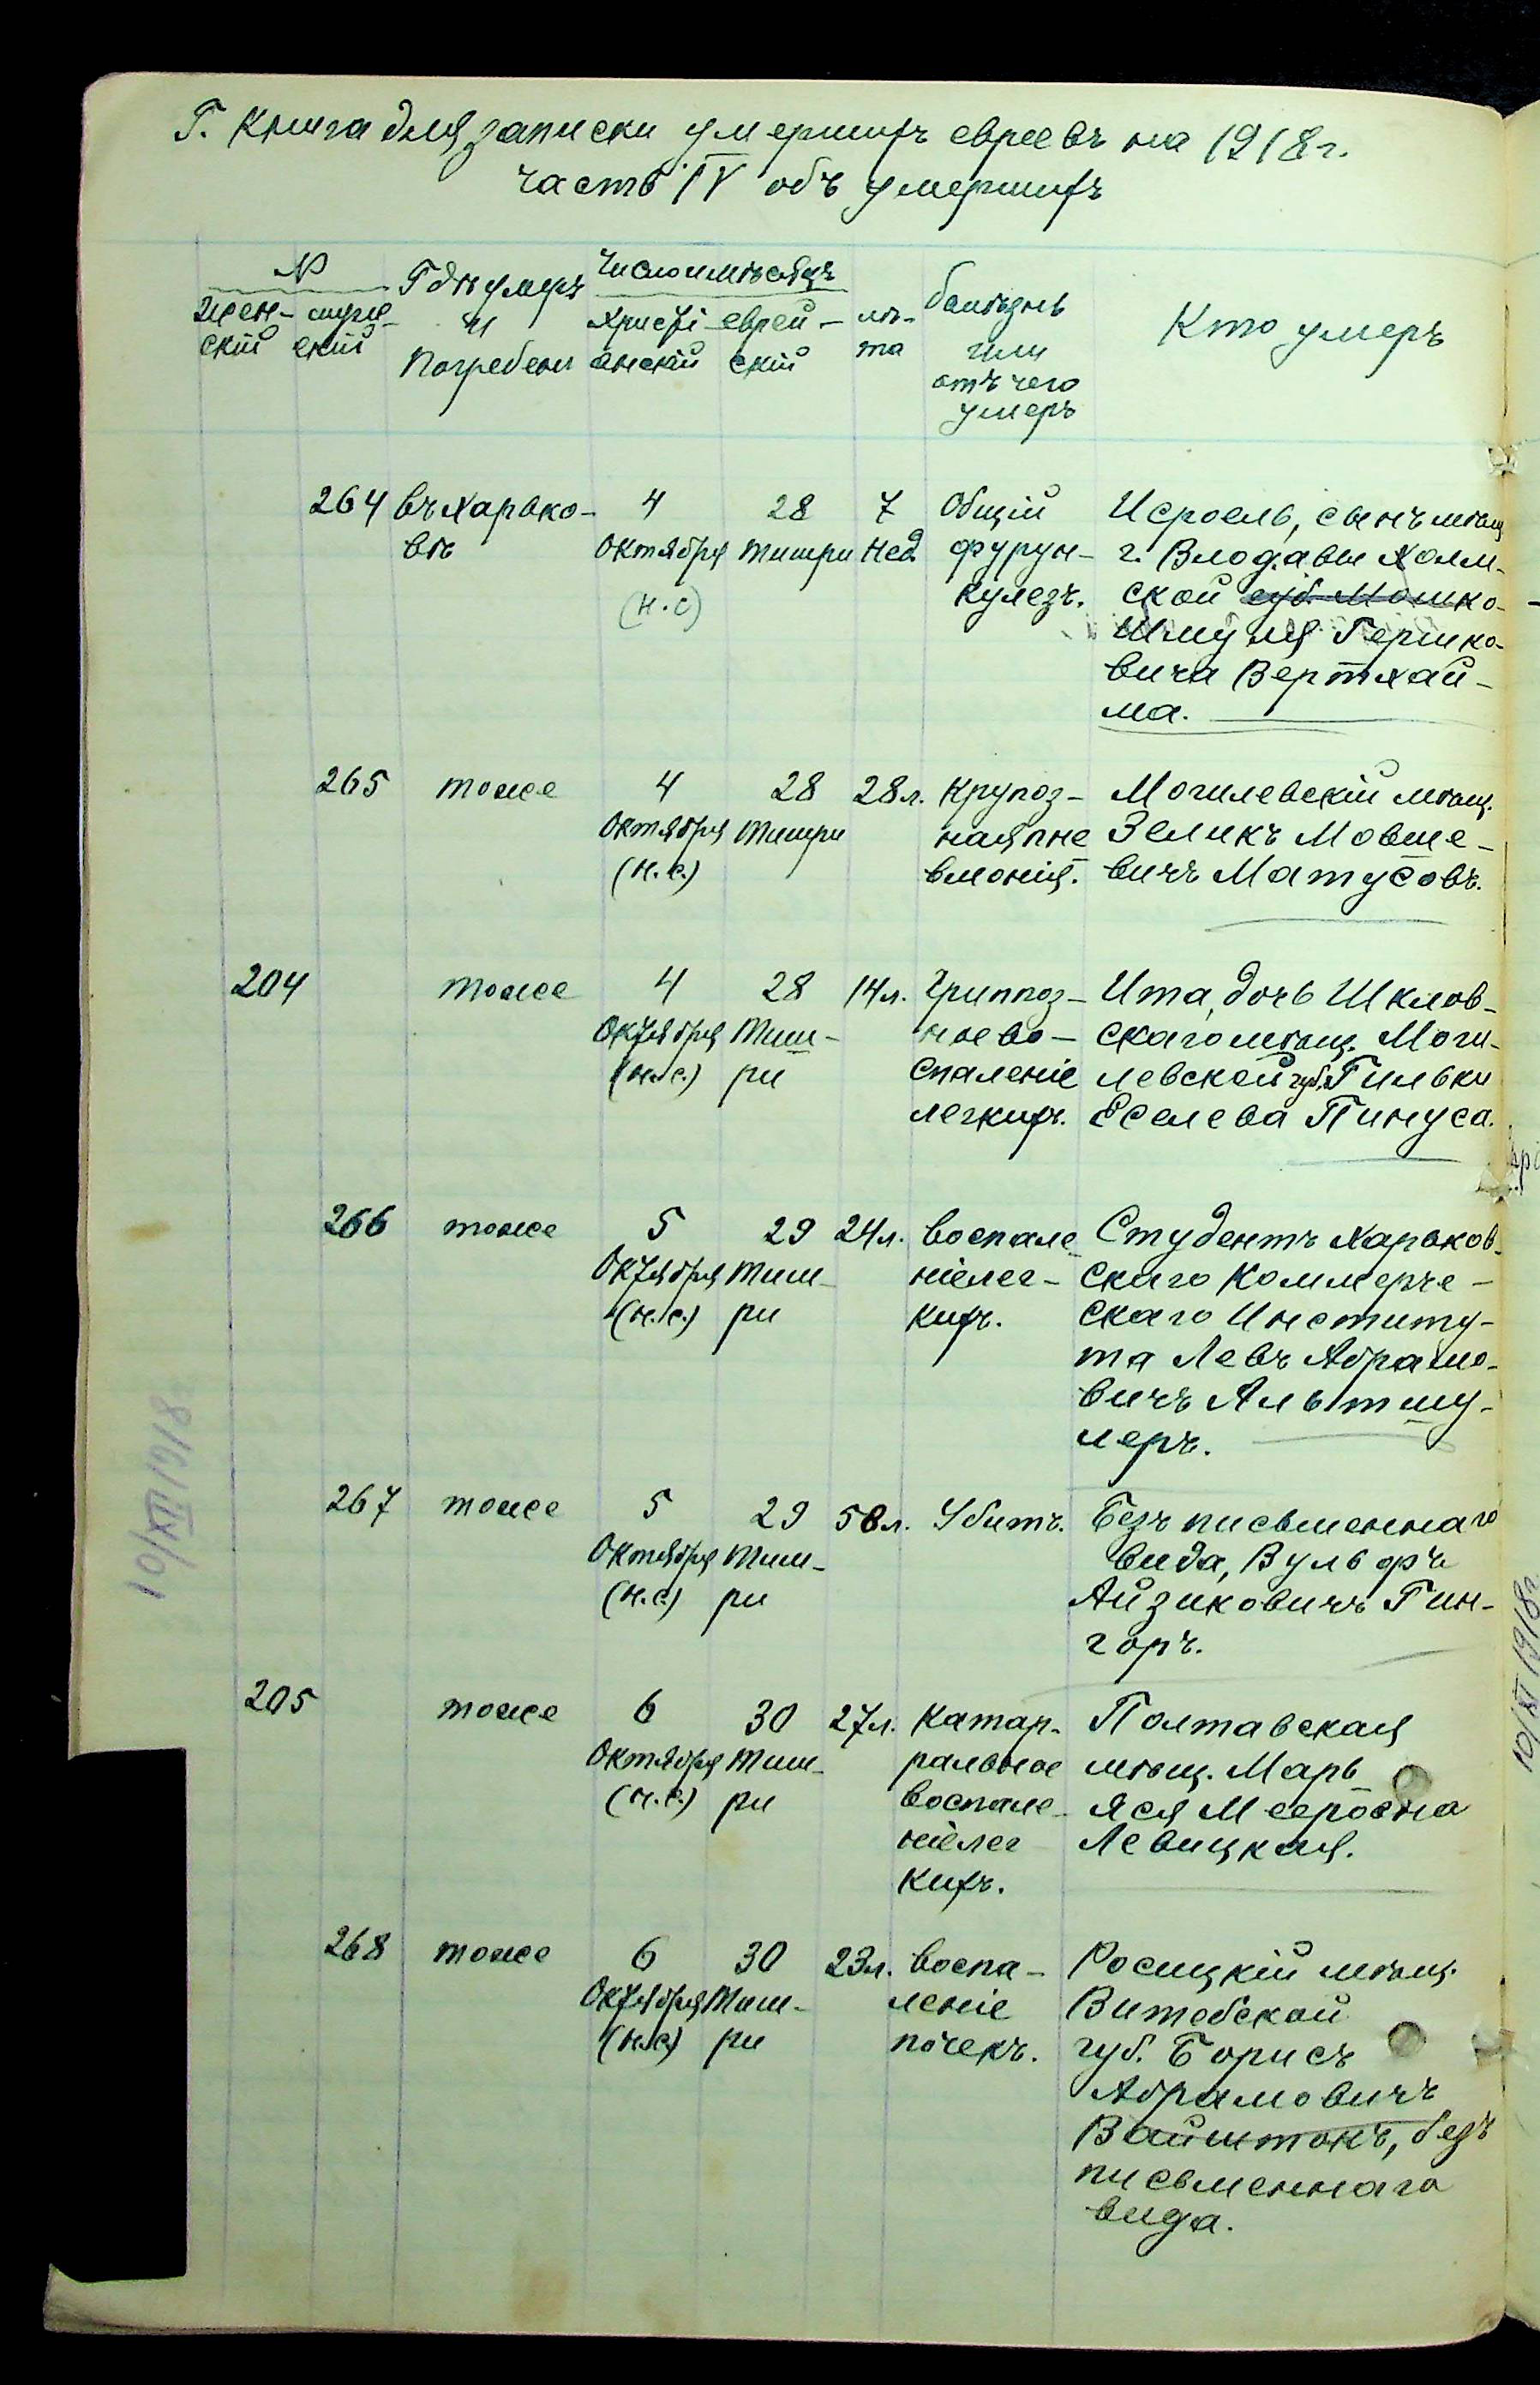 Г. Книга для записки умершихъ евреевъ на 1918 г.
часть IV объ умершихъ
№
Жен-
скій
мужс-
скій
Гдѣ умеръ
и
погребенъ
Число и мѣсяцъ
Христі-
анскій
еврей-
скій
лѣ-
та
Болѣзнь
или
отъ чего
умеръ
Кто умеръ
264
въ Харько-
вѣ
4
Октября
(н.с)
28
Тишри
7
нед
Общій
фурун-
кулезъ.
Исроель, сынъ мѣщ
г. Влодавы Холм-
ской губ. Мошко-
Шмуля Гершко-
вича Вертхай-
ма.
265
тоже
4
Октября
(н.с.)
28
Тишри
28 л.
Крупоз-
ная пне
вмонія.
Могилевскій мѣщ.
Зеликъ Мовше-
вичъ Матусовъ.
204
тоже
4
Октября
(н.с.)
28
Тиш-
ри
14 л.
Гриппоз-
ное во-
спаленіе
легкихъ.
Ита, дочь Шклов-
скаго мѣщ. Моги-
левской губ. Гильки
Еселева Пинуса.
266
тоже
5
Октября
(н.с.)
29
Тиш-
ри
24 л.
Воспале
ніе лег-
кихъ.
Студентъ Харьков-
скаго Коммерче-
скаго Институ-
та Левъ Абрамо-
вичъ Альтшу-
леръ.
267
тоже
5
Октября
(н.с)
29
Тиш-
ри
50 л.
Убитъ.
Безъ письменнаго
вида, Вульфъ
Айзиковичъ Гин-
горъ.
205
тоже
6
Октября
(н.с.)
30
Тиш-
ри
27 л.
Катар-
ральное
воспале-
ніе лег
кихъ.
Полтавская
мѣщ. Марь
яся Мееровна
Левицкая.
268
тоже
6
Октября
(н.с)
30
Тиш-
ри
23 л.
Воспа-
леніе
почекъ.
Росицкій мѣщ.
Витебской
губ. Борисъ
Абрамовичъ
Вайштокъ, безъ
письменнаго
вида.
10/XII 1918
10/XI 1918 г